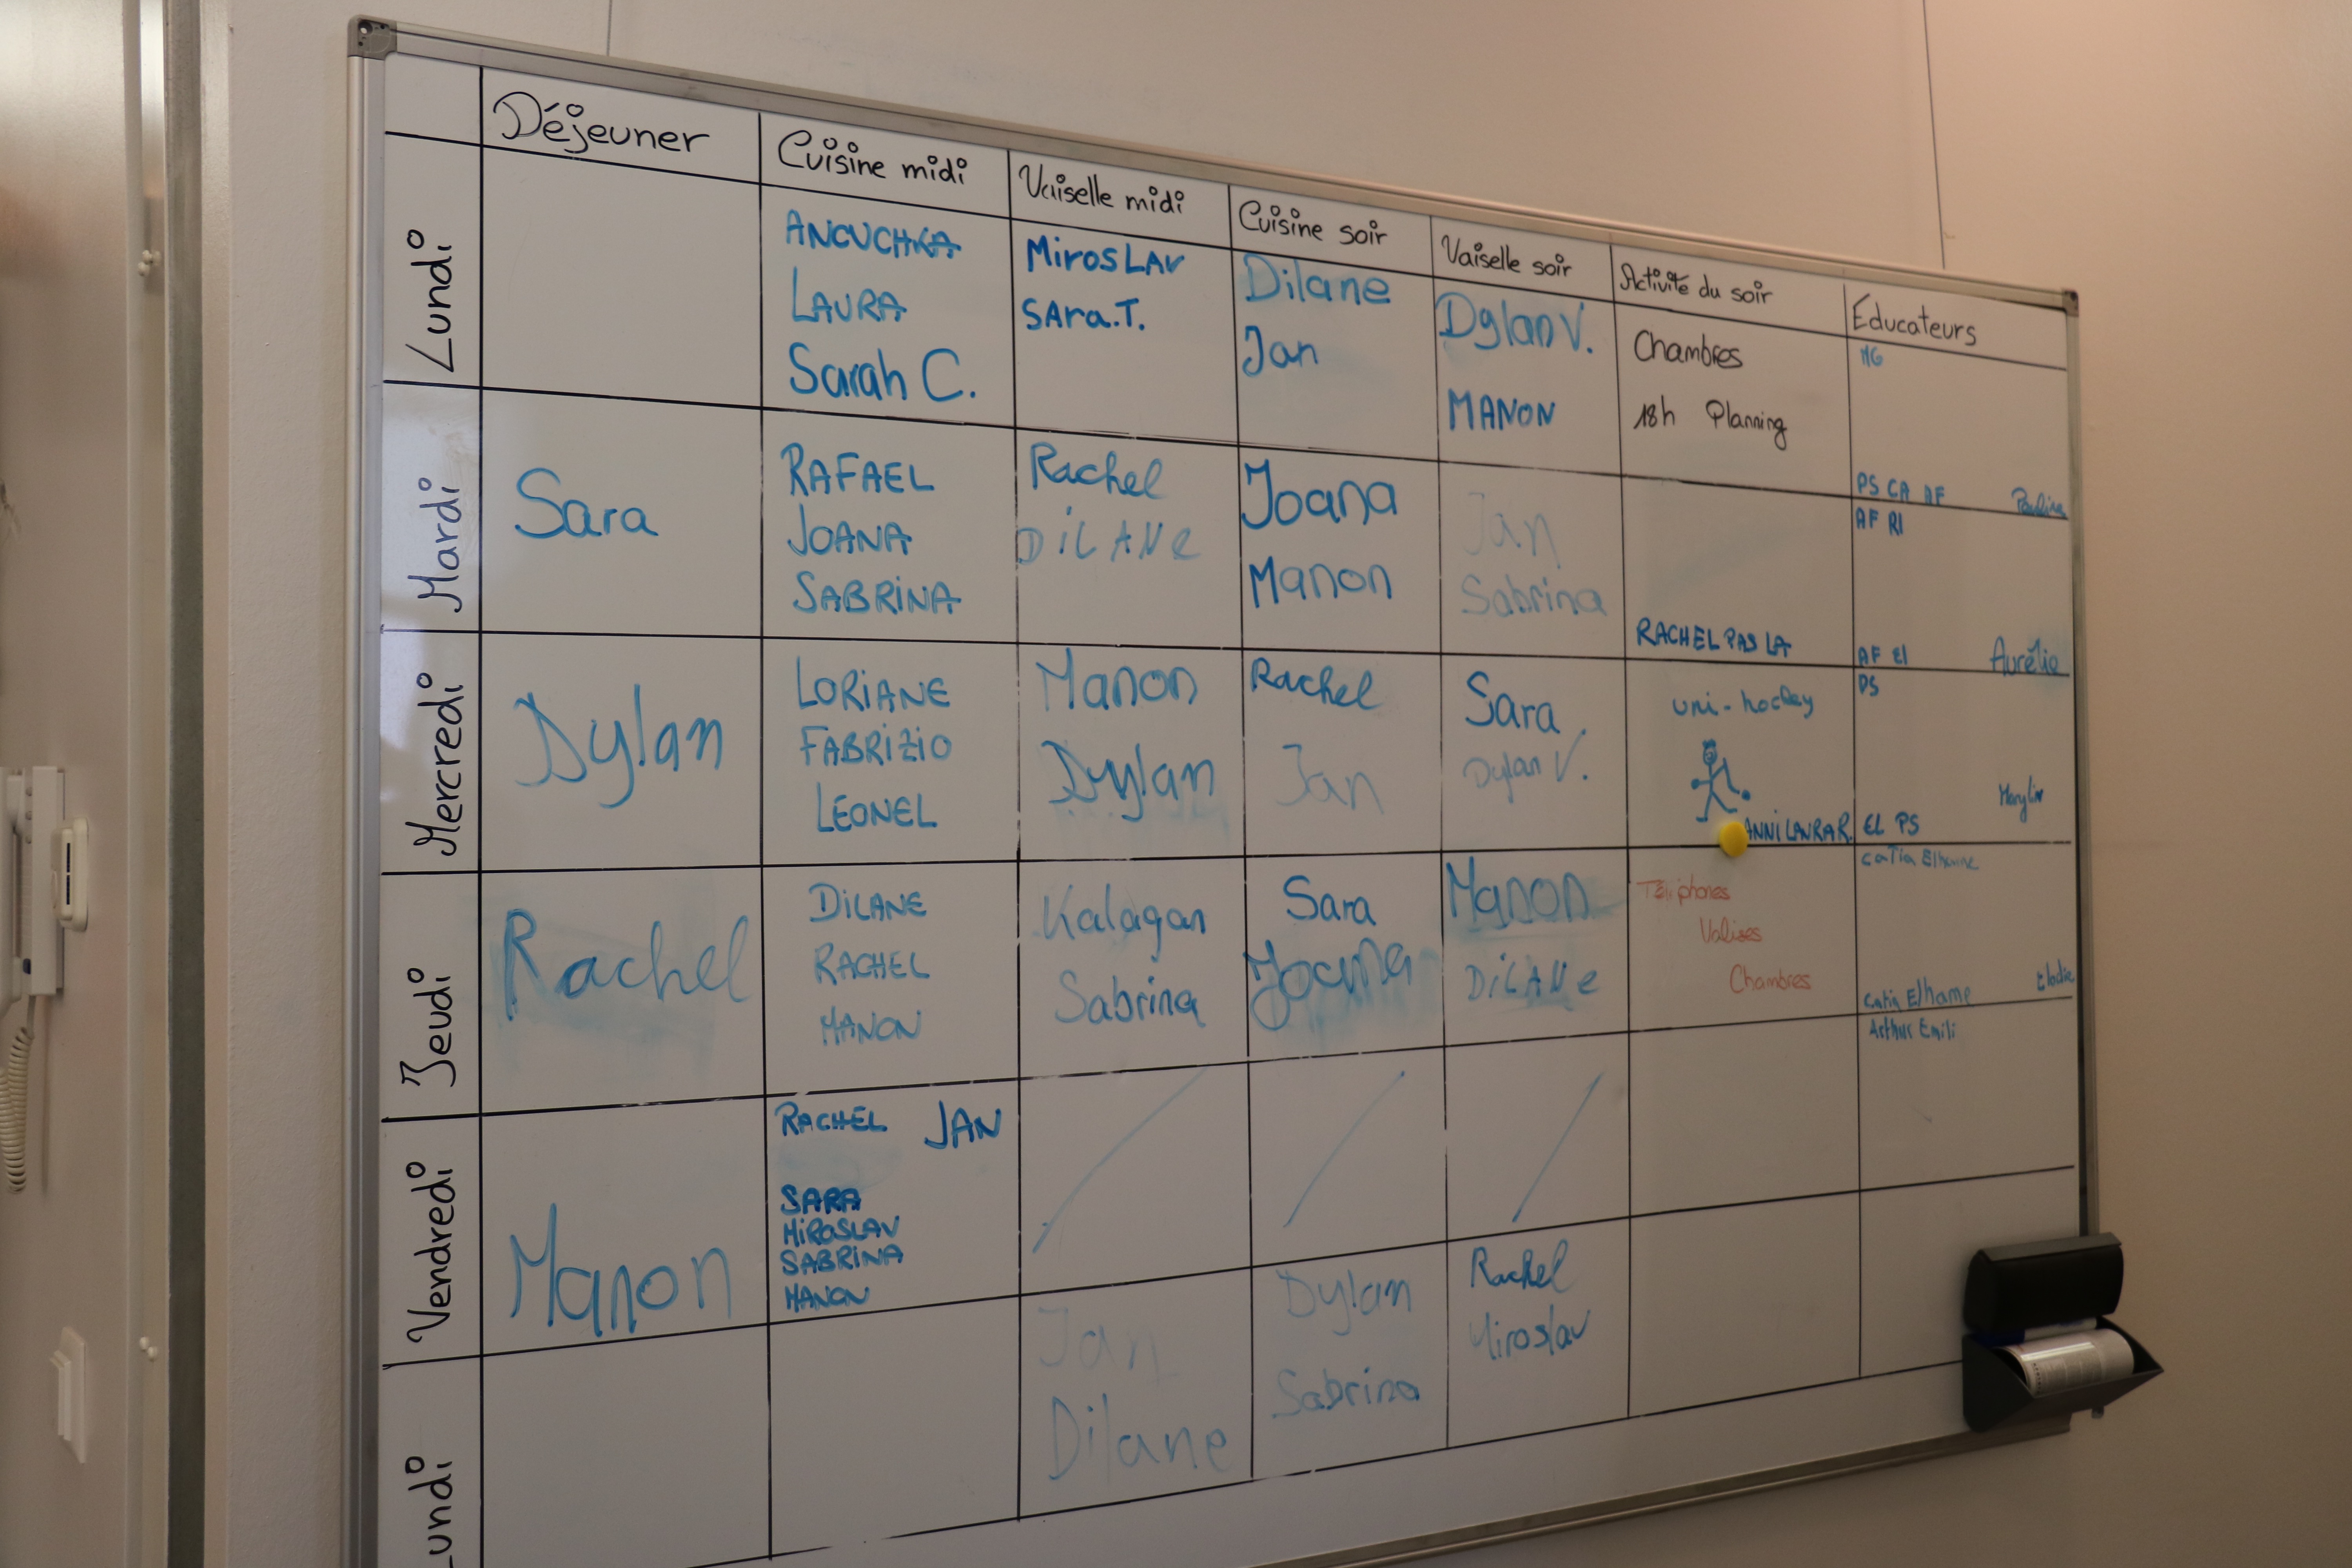 Déjeuner
Cuisine midi
Vaiselle midi
Cuisine soir
Vaiselle soir
Activité du soir
Éducateurs
Lundi
ANOUCHKA
LAURA
Sarah C.
MirosLAv
SAra.T.
Dilane
Jan
Dylan V.
MANON
Chambres
18h Planning
MG
PS CA AF
Pauline
Mardi
Sara
RAFAEL
JOANA
SABRiNA
Rachel
DiLANe
Joana
Manon
Jan
Sabrina
RACHEL PAS LA
AF RI
AF El
Aurélie
Mercredi
Dylan
LORiANE
FABRiZiO
LEONEL
Manon
Dylan
Rachel
Jan
Sara
Dylan V.
uni-hockey
PS
EL PS
Jeudi
Rachel
DiLANE
RACHEL
MANON
Kalagan
Sabrina
Sara
Joana
Manon
DiLANe
Téléphones
Valises
Chambres
Catia Elhame
Catia Elhame
Elodie
Vendredi
Manon
RACHEL JAN
SARA
MiROSLAV
SABRiNA
MANON
Arthur Emili
Lundi
Jan
Dilane
Dylan
Sabrina
Rachel
Miroslav